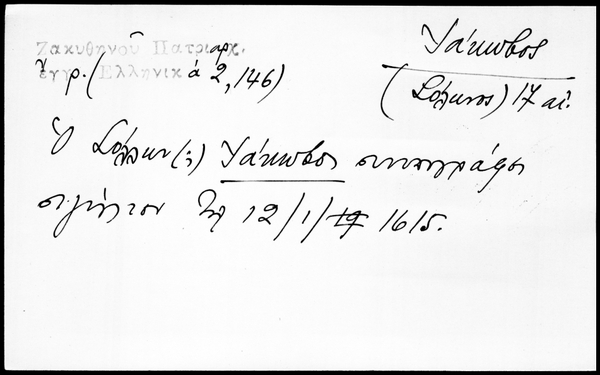 Ζακυθηνού Πατριαρχ.
έγγρ. (Ελληνικά 2, 146)
Ἰάκωβος
( Σόλωνος) 17 αἰ.
Ὁ (;) Ἰάκωβος συνυπογράφει
σιγίλλιον τῇ 12/1/19 1615.